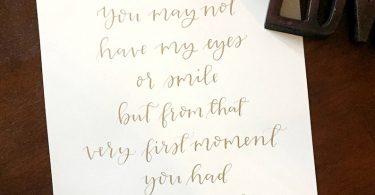 you may not
have my eyes
or smile
but from that
very first moment
you had